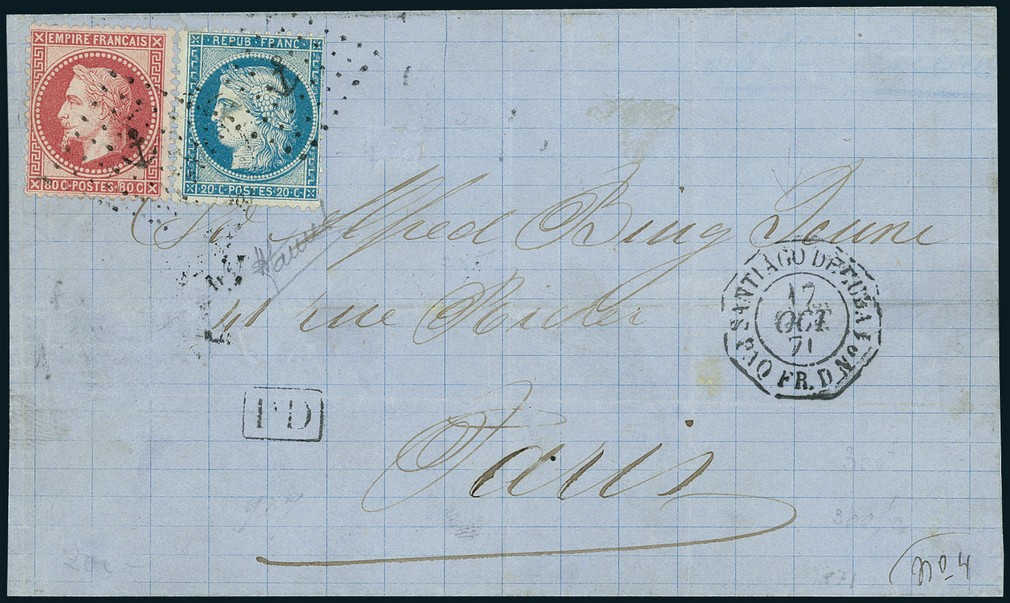 EMPIRE FRANÇAIS
80 C - POSTES - 80 C
REPUB · FRANC ·
20 · C · POSTES · 20 · C
Alfred Bing Jeune
41 rue Richer
Paris
SANTIAGO DE CUBA
17
OCT
71
PAQ FR. D Nº 1
PD
Nº 4